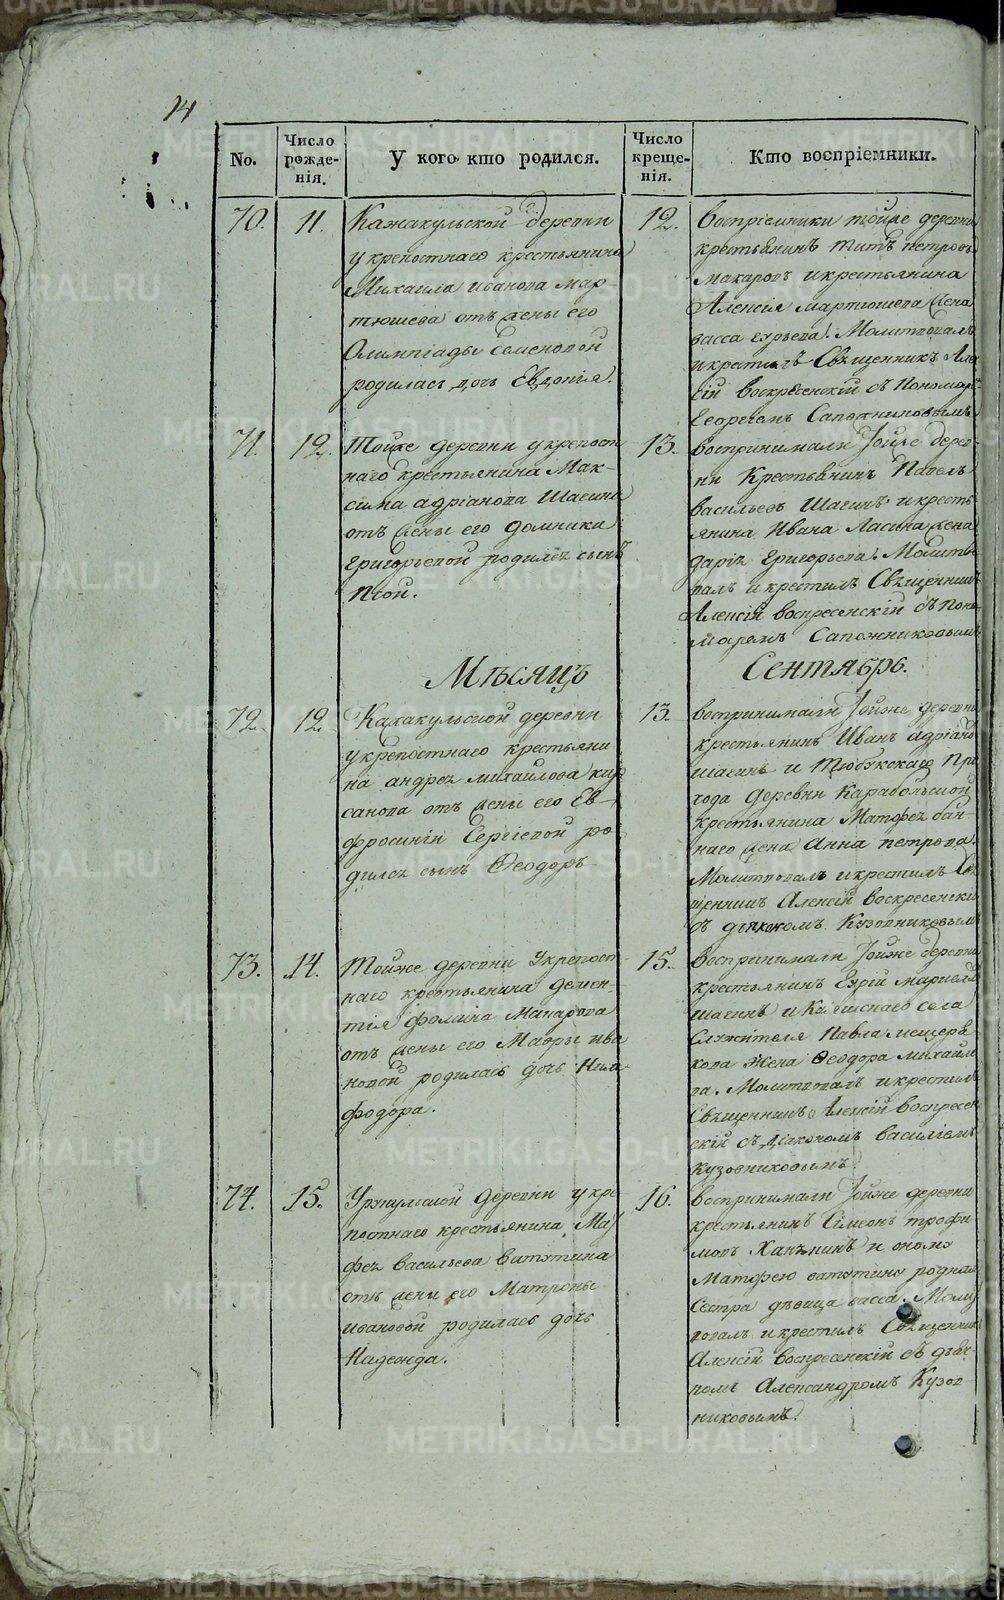 14
No.
Число рожде-нія.
У кого кто родился.
Число креще-нія.
Кто воспріемники.
70.
11.
Кажакульской деревни
у крепостнаго крестьянина
Михаила Иванова Мар
тюшева отъ жены его
Олимпіады Семеновой
родилась дочь Евдокія.
12.
воспріемники тойже деревни
крестьянинъ титъ петровъ
макаровъ и крестьянина
Алексія мартюшева жена
васса гурьева. Молитвовалъ
и крестилъ Священникъ Алек
сій воскресенскій съ Пономар
Георгіемъ Сапожниковымъ
71.
12.
Тойже деревни у крепост
наго крестьянина Мак-
сима адріанова Шагина
отъ жены его домники
григорьевой родился сынъ
Псой.
13.
воспринимали Тойже дерев-
ни Крестьянинъ Павелъ
васильевъ Шагинъ и кресть
янина Ивана Ласина жена
дарія григорьева. Молитво
валъ и крестилъ Священникъ
Алексій воскресенскій съ Поно-
маремъ Сапожниковымъ
Мѣсяцъ
Сентябрь.
72.
12.
Кажакульской деревни
у крепостнаго крестьяни
на андрея михайлова кир
санова отъ жены его Ев-
фросиніи Сергіевой ро
дился сынъ Ѳеодоръ
13.
воспринимали Тойже деревни
крестьянинъ Иванъ адріановъ
шагинъ и Тюбукскаго При
хода деревни Карабольской
крестьянина Матфея бан-
наго жена Анна петрова.
Молитвовалъ и крестилъ Св
щенникъ Алексій воскресенскій
съ дьякономъ Кузовниковымъ
73.
14.
Тойже деревни У крепост
наго крестьянина демен-
тія фомина Макарова
отъ жены его Мавры ива
новой родилась дочь Ники
фодора.
15.
воспринимали Тойже деревни
крестьянинъ
шагинъ и Каслинскаго села
Служителя Павла мещеря
кова Жена Ѳеодора михайло
ва. Молитвовалъ и крестилъ
Священникъ Алексій воскресен
скій съ діакономъ василіемъ
Кузовниковымъ
74.
15.
деревни у кре
постнаго крестьянина Мат
фея васильева ватятина
отъ жены его Матроны
ивановой родилась дочь
Надежда.
16.
воспринимали Тойже деревни
крестьянинъ Симеонъ трофи
мовъ и оному
Матфею ватятину родная
Сестра дѣвица васса. Моли
вовалъ и крестилъ Священникъ
Алексій воскресенскій съ дьяч-
комъ Александромъ Кузов-
никовымъ.
METRIKI.GASO-URAL.RU